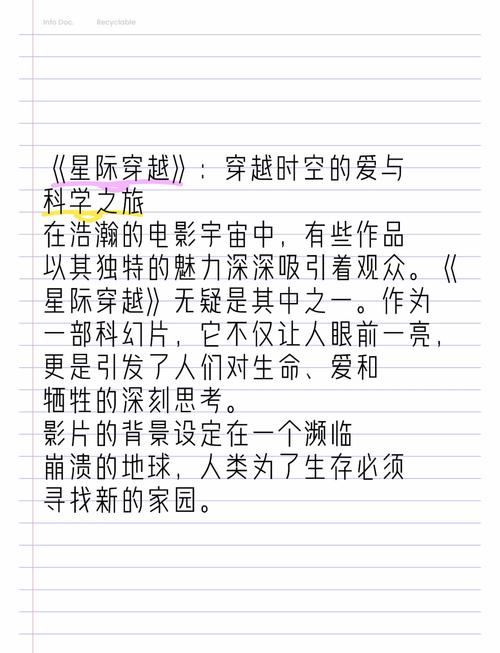 Info Doc. Recyclable
《星际穿越》：穿越时空的爱与
科学之旅
在浩瀚的电影宇宙中，有些作品
以其独特的魅力深深吸引着观众。《
星际穿越》无疑是其中之一。作为
一部科幻片，它不仅让人眼前一亮，
更是引发了人们对生命、爱和
牺牲的深刻思考。
影片的背景设定在一个濒临
崩溃的地球，人类为了生存必须
寻找新的家园。